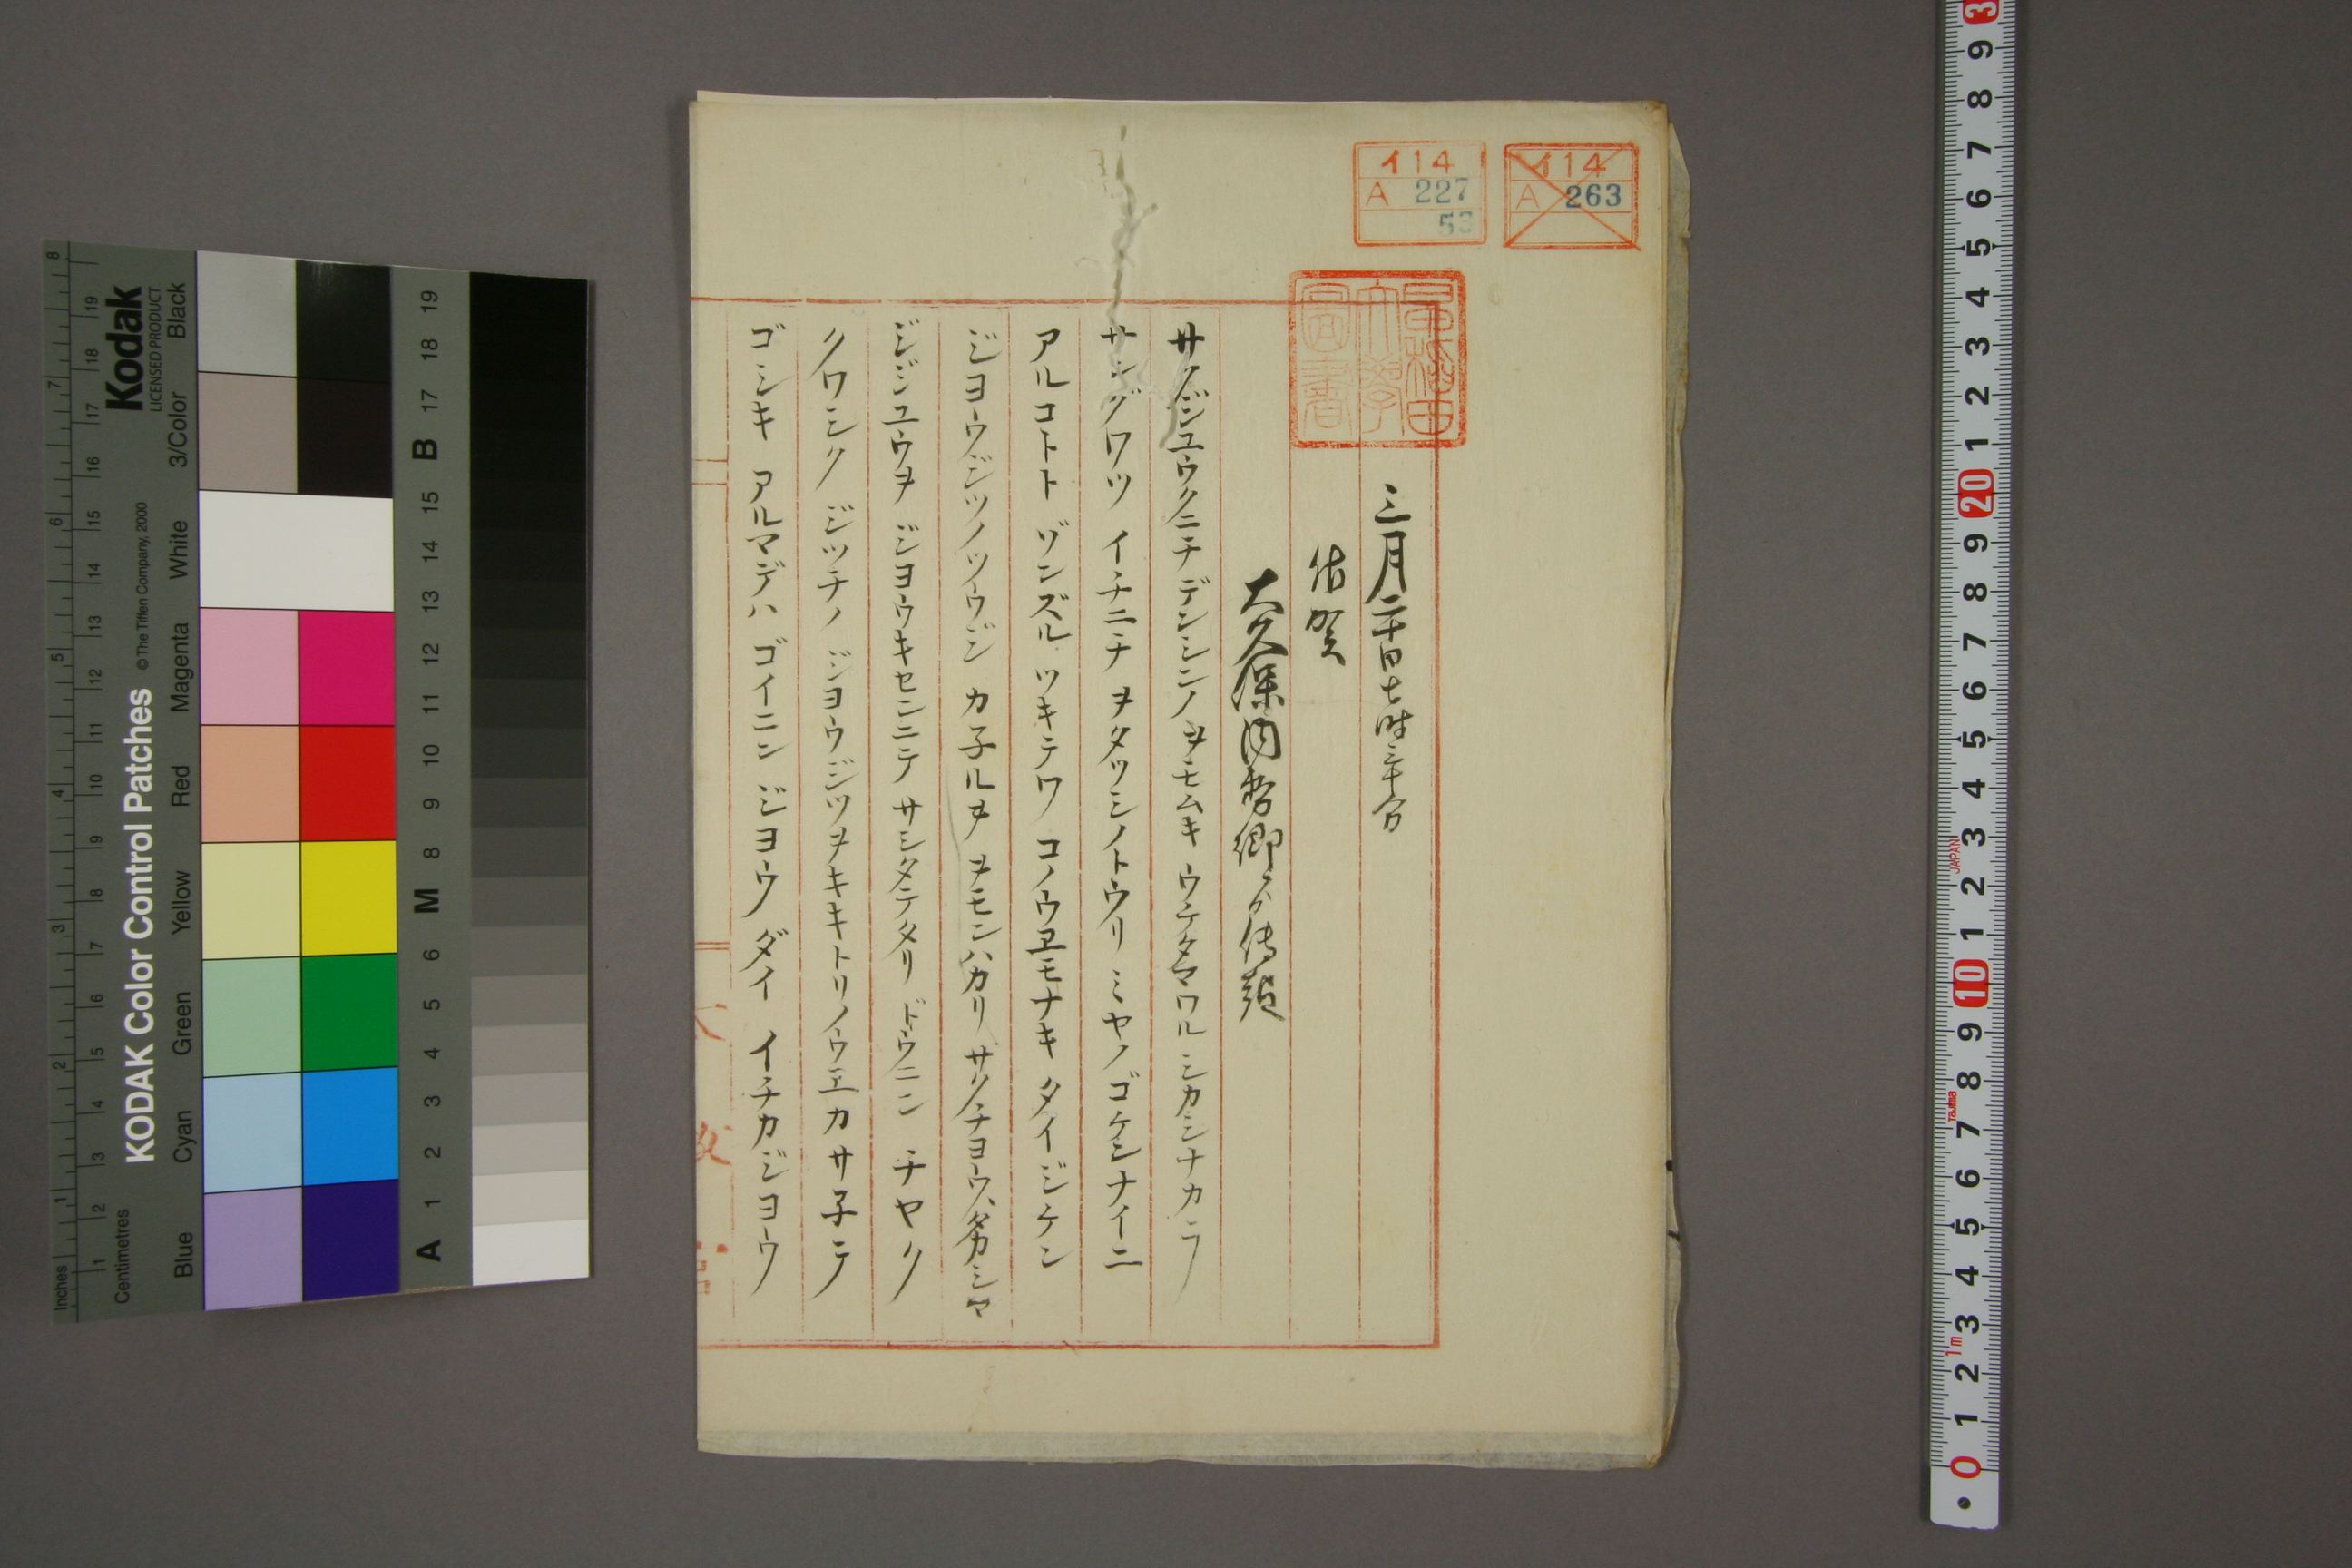 イ14
A 227
53
イ14
A 263
早稲田
大學
圖書
三月二十日七時三十分
佐賀
大久保内務卿ゟ傳報
サクジユウクニチ デンシンノ ヲモムキ ウケタマワル シカシナカラ
サングワツ イチニチ ヲタツシノトウリ ミヤノ ゴケンナイニ
アルコトト ゾンズル ツキテワ コノウヱモナキ タイジケン
ジヨウジツノツウジ カ子ルヲ ヲモンハカリ サクチヨウ、タカシマ
ジジユウヲ ジヨウキセンニテ サシタテタリ ドウニン チヤク
クワシク ジツチノ ジヨウジツヲキキトリノウエカサ子テ
ゴシキ アルマデハ ゴイニン ジヨウ ダイ イチカジヨウ
KODAK Color Control Patches
© The Tiffen Company, 2000
Kodak
LICENSED PRODUCT
Blue Cyan Green Yellow Red Magenta White 3/Color Black
Inches 1 2 3 4 5 6 7 8
Centimetres 1 2 3 4 5 6 7 8 9 10 11 12 13 14 15 16 17 18 19
A 1 2 3 4 5 6 M 8 9 10 11 12 13 14 15 B 17 18 19
0 1 2 3 4 5 6 7 8 9 10 1 2 3 4 5 6 7 8 9 20 1 2 3 4 5 6 7 8 9 3
1m
Tajima
JAPAN